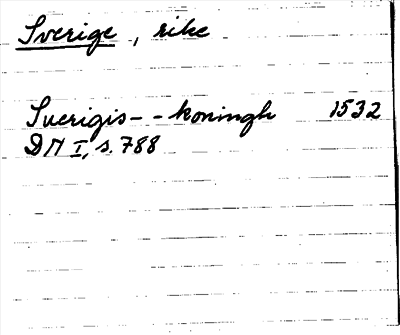 Sverige, rike
Sverigis - - koningh 1532
DM I, s. 788